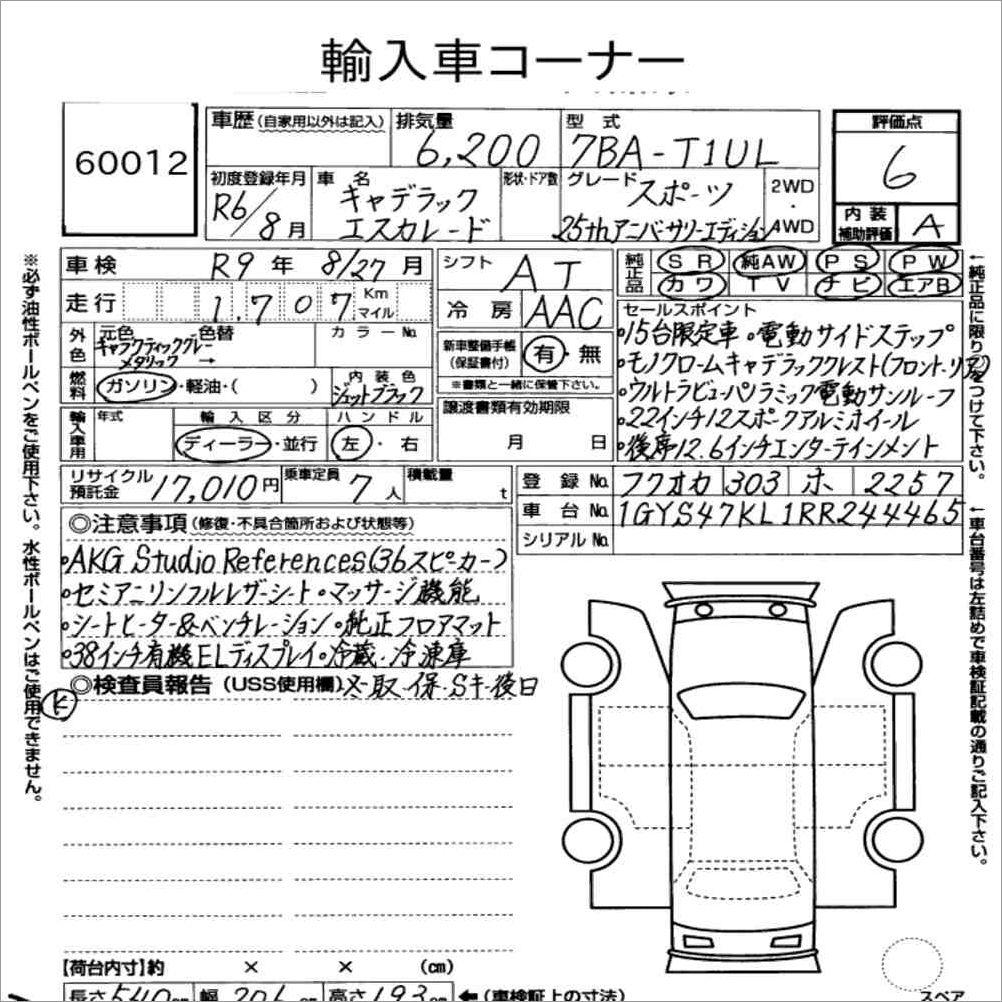 輸入車コーナー
60012
車歴 (自家用以外は記入)
排気量 6,200
型式 7BA-T1UL
評価点 6
初度登録年月 R6/8月
車名 キャデラック エスカレード
形状・ドア数
グレード スポーツ 25thアニバーサリーエディション
2WD・4WD
内装補助評価 A
車検 R9年 8/27月
シフト AT
純正品 SR 純AW PS PW
カワ TV ナビ エアB
走行 1,707 Km マイル
冷房 AAC
セールスポイント
・15台限定車・電動サイドステップ
・モノクロームキャデラッククレスト(フロント・リア)
・ウルトラビューパノラミック電動サンルーフ
・22インチ12スポークアルミホイール
・後席12.6インチエンターテインメント
外色 元色 ギャラクティックグレーメタリック → 色替
カラーNo.
新車整備手帳(保証書付) 有・無
※書類と一緒に保管下さい。
燃料 ガソリン・軽油・( )
内装色 ジェットブラック
輸入車用 年式 輸入区分 ディーラー・並行 ハンドル 左・右
譲渡書類有効期限 月 日
リサイクル預託金 17,010円
乗車定員 7人
積載量 t
登録No. フクオカ 303 ホ 2257
車台No. 1GYS47KL1RR244465
シリアルNo.
◎注意事項 (修復・不具合箇所および状態等)
・AKG Studio References(36スピーカー)
・セミアニリンフルレザーシート・マッサージ機能
・シートヒーター&ベンチレーション・純正フロアマット
・38インチ有機ELディスプレイ・冷蔵・冷凍庫
◎検査員報告 (USS使用欄) 冬・取・保・Sキー後日
【荷台内寸】約 × × (cm)
長さ540cm 幅206 高さ193cm ←(車検証上の寸法)
スペア
※必ず油性ボールペンをご使用下さい。水性ボールペンはご使用できません。
←純正品に限り○をつけて下さい。
←車台番号は左詰めで車検証記載の通りご記入下さい。